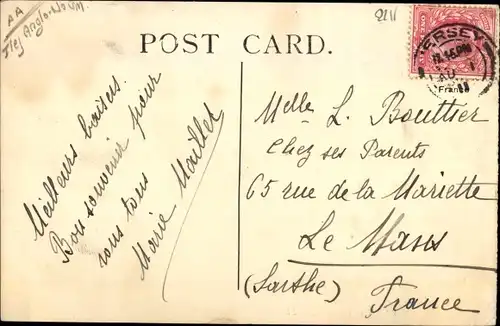 AA
Iles Anglo-Norm.
2211
POST CARD.
JERSEY
12.45PM
AU 1
France
Meilleurs baisers.
Bon souvenir pour
vous tous
Marie Maillet
Melle L. Bouttier
Chez ses Parents
65 rue de la Mariette
Le Mans
(Sarthe)
France